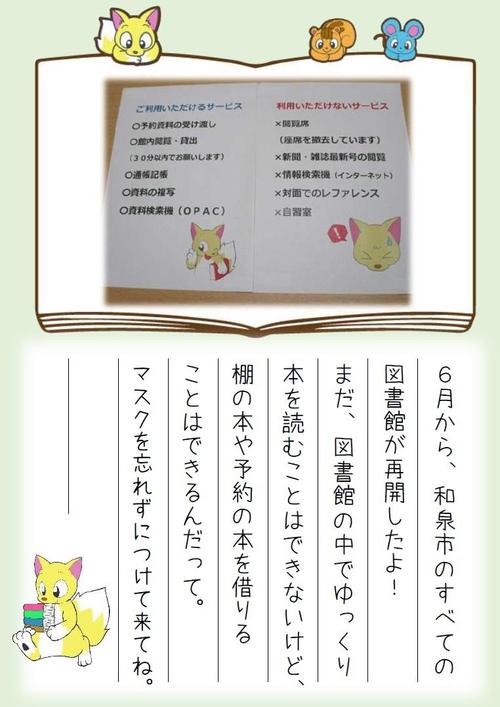 ご利用いただけるサービス
○予約資料の受け渡し
○館内閲覧・貸出
(30分以内でお願いします)
○通帳記帳
○資料の複写
○資料検索機(OPAC)
利用いただけないサービス
×閲覧席
(座席を撤去しています)
×新聞・雑誌最新号の閲覧
×情報検索機(インターネット)
×対面でのレファレンス
×自習室
!
6月から、和泉市のすべての
図書館が再開したよ!
まだ、図書館の中でゆっくり
本を読むことはできないけど、
棚の本や予約の本を借りる
ことはできるんだって。
マスクを忘れずにつけて来てね。